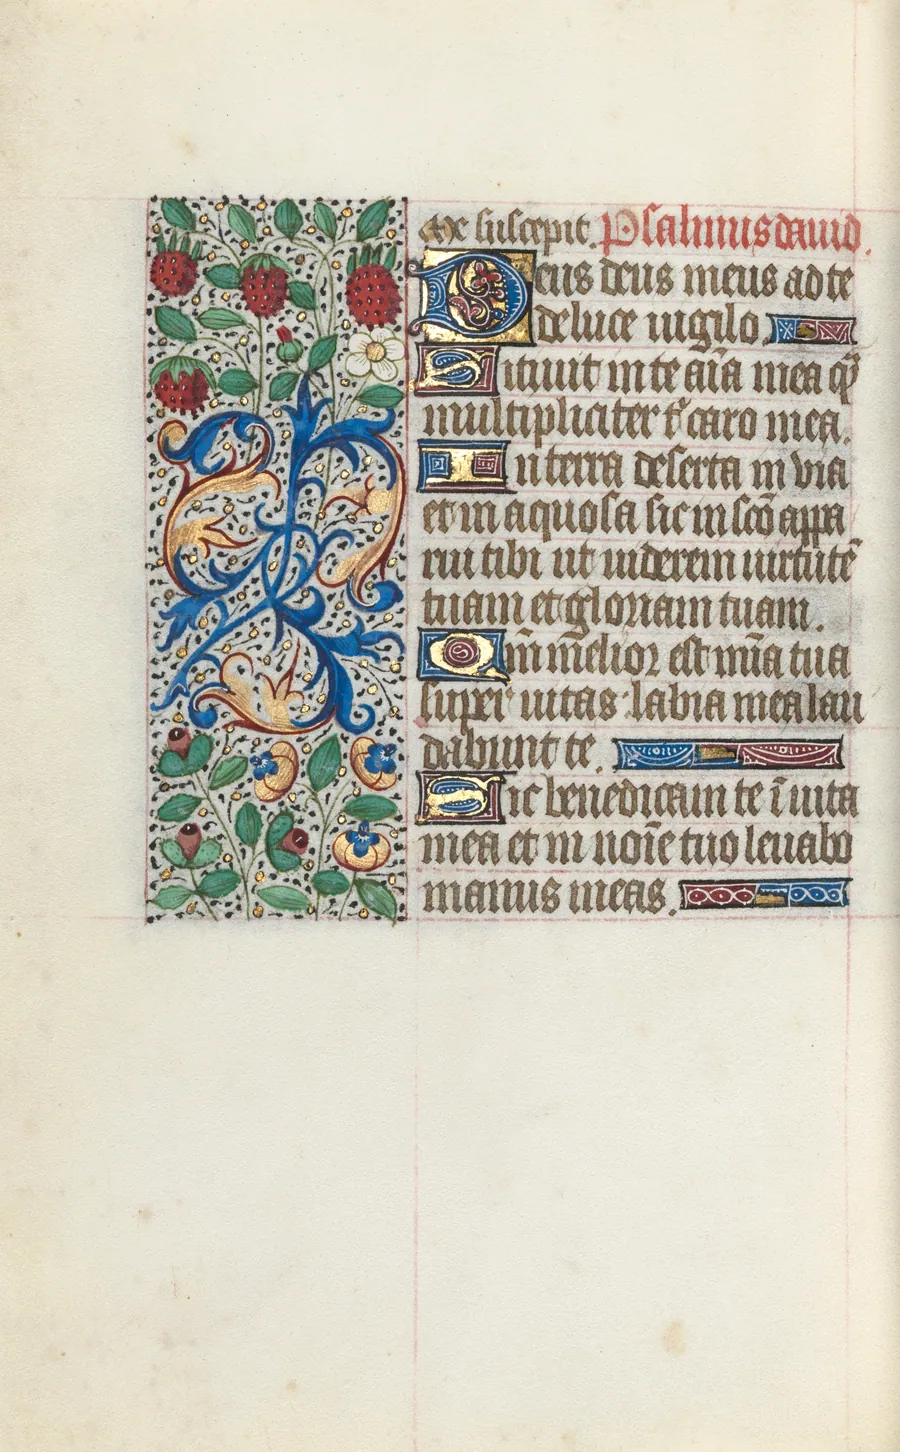 me suscepit. Psalmus dauid.
Deus deus meus ad te
de luce uigilo.
Sitiuit in te aīa mea qͣ
multipliciter t᷑ caro mea.
In terra deserta in via
et in aquosa sic in scō appa
rui tibi ut uiderem uirtutē
tuam et gloriam tuam.
Qm̄ m̄elior est mīa tua
super uitas labia mea lau
dabunt te.
Sic benedicam te ī uita
mea et in noīe tuo leuabo
manus meas.